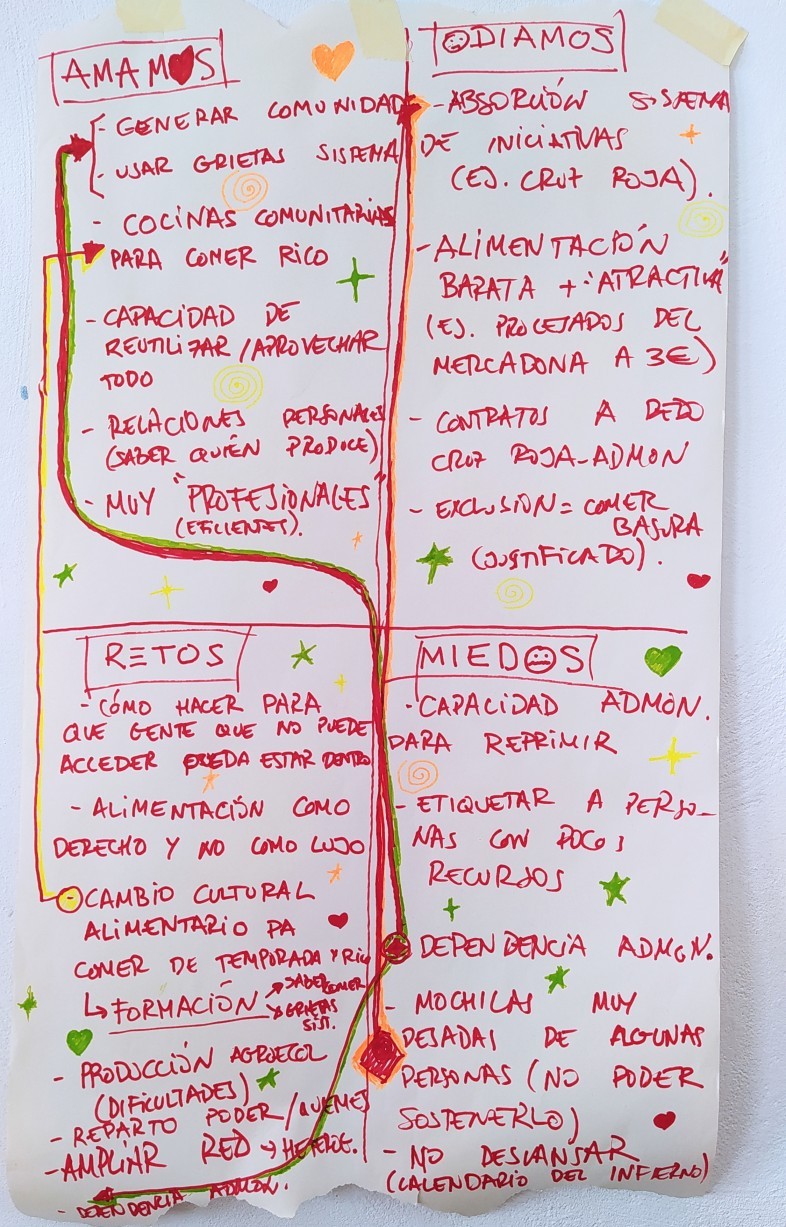 AMAMOS
- GENERAR COMUNIDAD
- USAR GRIETAS SISTEMA
- COCINAS COMUNITARIAS
PARA COMER RICO
- CAPACIDAD DE
REUTILIZAR / APROVECHAR
TODO
- RELACIONES PERSONALES
(SABER QUIÉN PRODUCE)
- MUY "PROFESIONALES"
(EFICIENTES).
ODIAMOS
- ABSORCIÓN SISTEMA
DE INICIATIVAS
(EJ. CRUZ ROJA).
- ALIMENTACIÓN
BARATA + "ATRACTIVA"
(EJ. PROCESADOS DEL
MERCADONA A 3€)
- CONTRATOS A DEDO
CRUZ ROJA-ADMON
- EXCLUSIÓN = COMER
BASURA
(JUSTIFICADO).
RETOS
- CÓMO HACER PARA
QUE GENTE QUE NO PUEDE
ACCEDER PUEDA ESTAR DENTRO
- ALIMENTACIÓN COMO
DERECHO Y NO COMO LUJO
- CAMBIO CULTURAL
ALIMENTARIO PA
COMER DE TEMPORADA Y RICO
↳ FORMACIÓN → SABER COMER
→ GRIETAS SIST.
- PRODUCCIÓN AGROECOL
(DIFICULTADES)
- REPARTO PODER /
- AMPLIAR RED →
- DEPENDENCIA ADMON.
MIEDOS
- CAPACIDAD ADMON.
PARA REPRIMIR
- ETIQUETAR A PERSO-
NAS CON POCOS
RECURSOS
- DEPENDENCIA ADMON.
- MOCHILAS MUY
PESADAS DE ALGUNAS
PERSONAS (NO PODER
SOSTENERLO)
- NO DESCANSAR
(CALENDARIO DEL INFIERNO)